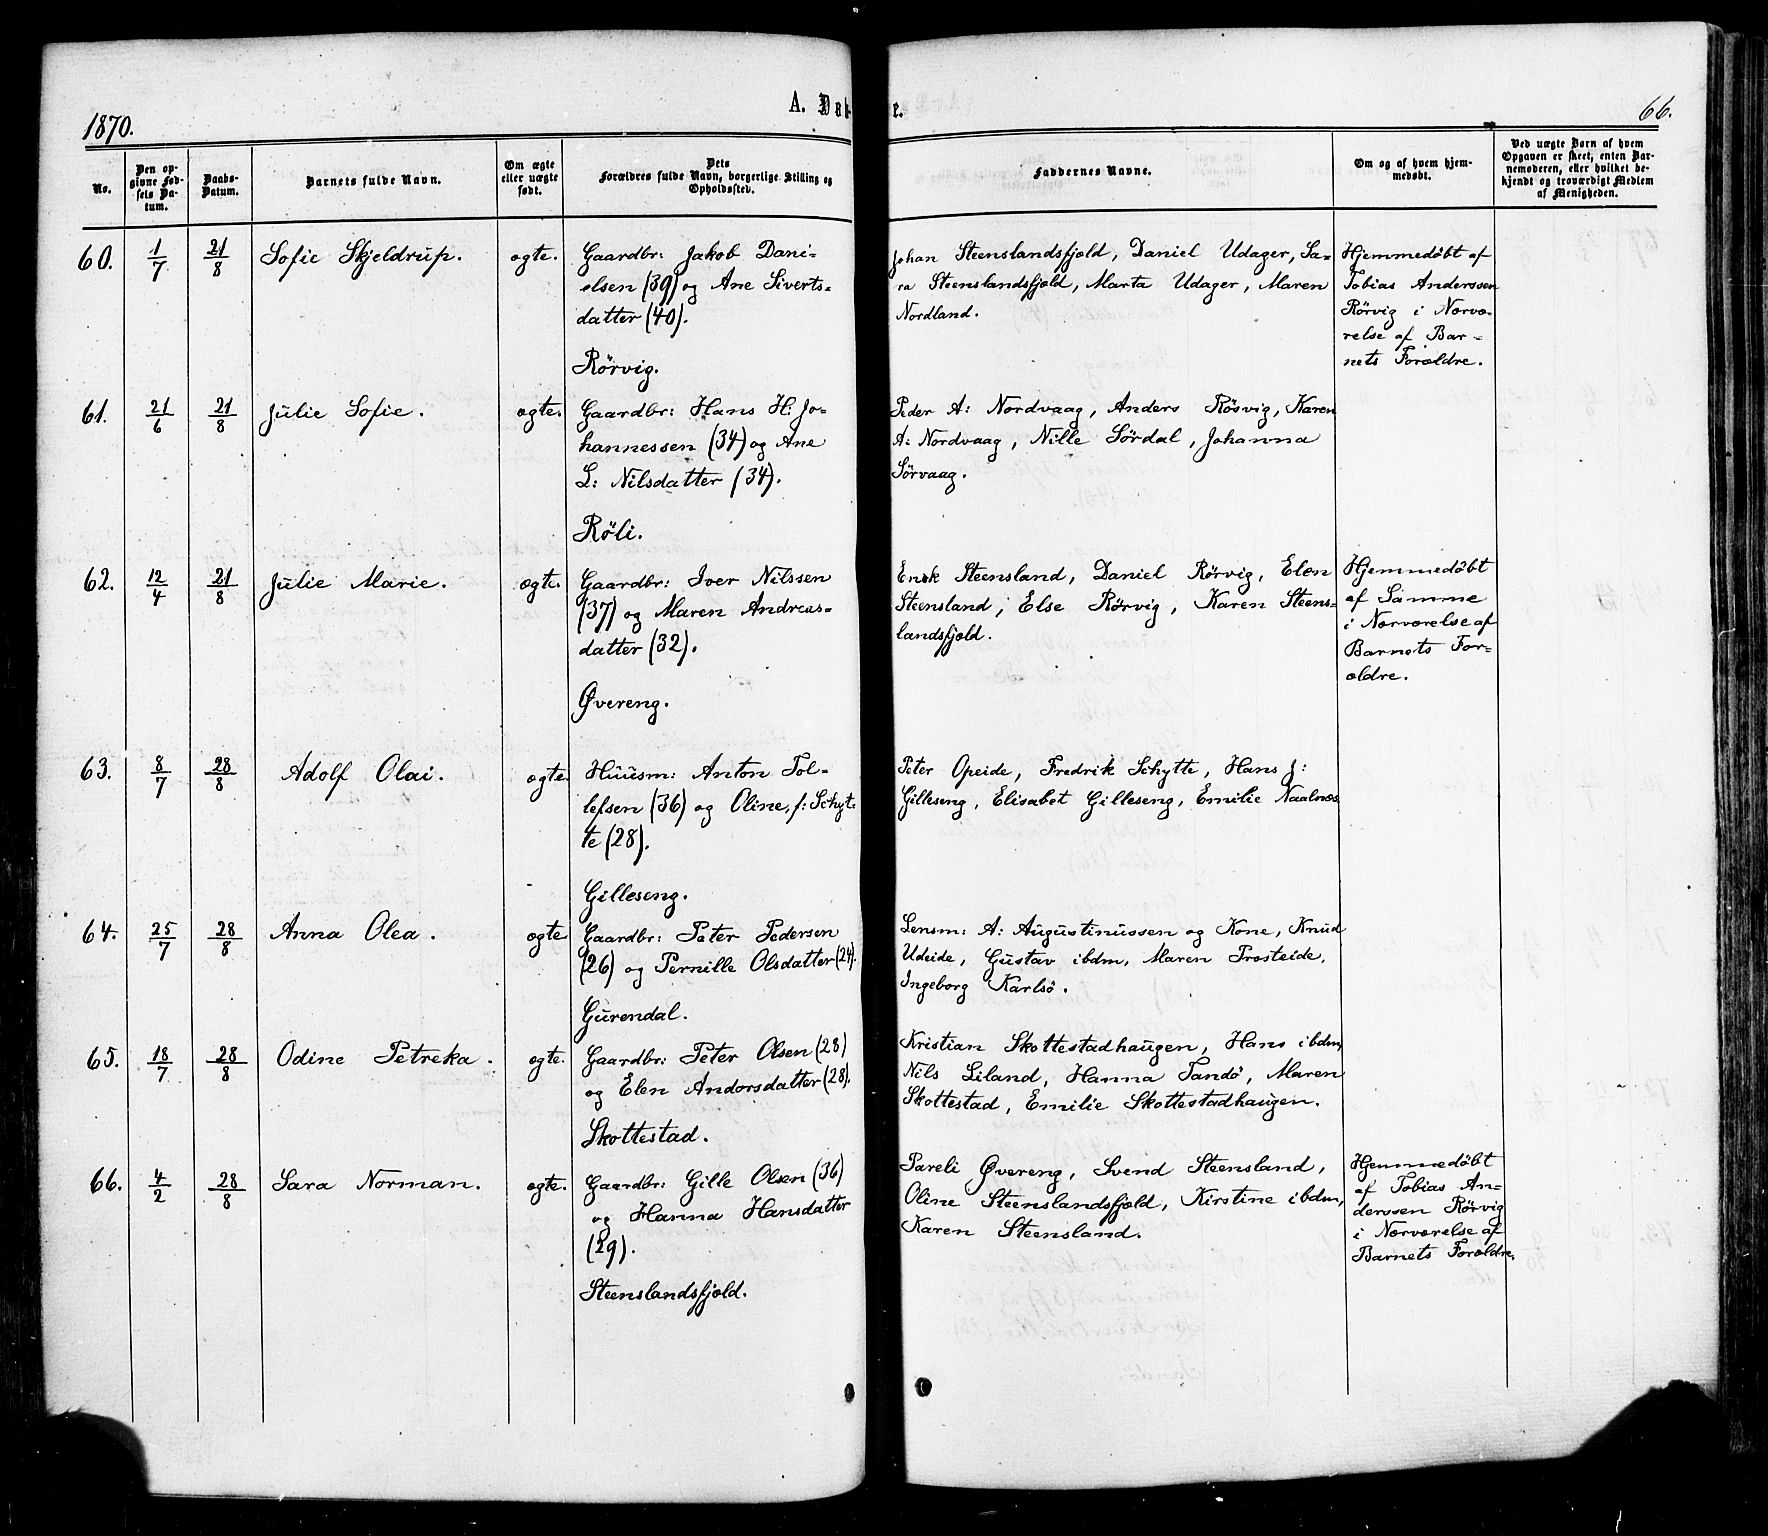 1870.
A. Døb-
e.
66.
No.
Den op-
givne Fød-
sels Da-
tum.
Daabs-
Datum.
Barnets fulde Navn.
Om ægte
eller uægte
født.
Dets
Forældres fulde Navn, borgerlige Stilling og
Opholdssted.
Faddernes Navne.
Om og af hvem hjem-
medøbt.
Ved uægte Børn af hvem
Opgaven er skeet, enten Bar-
nemoderen, eller hvilket be-
kjendt og troværdigt Medlem
af Menigheden.
60.
1/7
21/8
Sofie Skjeldrup.
ægte.
Gaardbr: Jakob Dani-
elsen (39) og Ane Siverts-
datter (40).
Rörvig.
Johan Steenslandsfjeld, Daniel Udager, Sa-
ra Steenslandsfjeld, Marta Udager, Maren
Nordland.
Hjemmedöbt af
Tobias Anderssen
Rörvig i Nærvæ-
relse af Bar-
nets Forældre.
61.
21/6
21/8
Julie Sofie.
ægte.
Gaardbr: Hans H: Jo-
hannessen (34) og Ane
L: Nilsdatter (34).
Röli.
Peder A: Nordvaag, Anders Rösvig, Karen
A: Nordvaag, Nille Sördal, Johanna
Sörvaag.
62.
12/4
21/8
Julie Marie.
ægte.
Gaardbr: Iver Nilssen
(37) og Maren Andreas-
datter (32).
Øvereng.
Enok Steensland, Daniel Rörvig, Elen
Steensland, Else Rörvig, Karen Steens-
landsfjeld.
Hjemmedöbt
af Samme
i Nærværelse af
Barnets For-
ældre.
63.
8/7
28/8
Adolf Olai.
ægte.
Huusm: Anton Tol-
lefsen (36) og Oline, f: Schyt-
te (28).
Gilleseng.
Peter Opeide, Fredrik Schytte, Hans J:
Gilleseng, Elisabet Gilleseng, Emilie Naalnæs.
64.
25/7
28/8
Anna Olea.
ægte
Gaardbr: Peter Pedersen
(26) og Pernille Olsdatter (24).
Gurendal.
Lensm: A: Augustinussen og Kone, Knud
Udeide, Gustav ibdm, Maren Prosteide,
Ingeborg Karlsö.
65.
18/7
28/8
Odine Petreka.
ægte.
Gaardbr: Peter Olsen (28)
og Elen Andorsdatter (28).
Skottestad.
Kristian Skottestadhaugen, Hans ibdm,
Nils Liland, Hanna Tandö, Maren
Skottestad, Emilie Skottestadhaugen.
66.
4/2
28/8
Sara Norman.
ægte.
Gaardbr: Gille Olsen (36)
og Hanna Hansdatter
(29).
Steenslandsfjeld.
Pareli Øvereng, Svend Steensland,
Oline Steenslandsfjeld, Kirstine ibdm,
Karen Steensland.
Hjemmedöbt
af Tobias An-
derssen Rörvig
i Nærværelse af
Barnets Forældre.